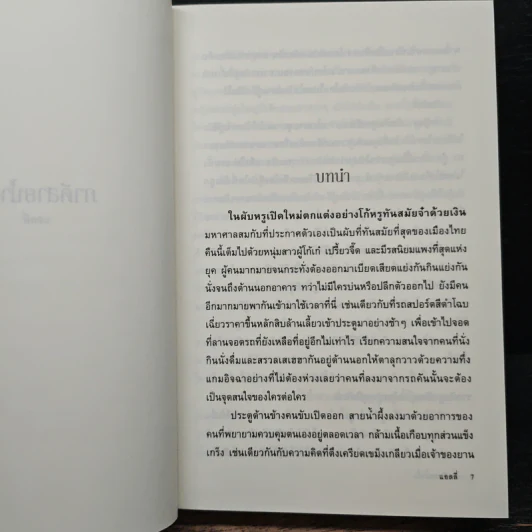 บทนำ
ในผับหรูเปิดใหม่ตกแต่งอย่างโก้หรูทันสมัยจ๋าด้วยเงิน
มหาศาลสมกับที่ประกาศตัวเองเป็นผับที่ทันสมัยที่สุดของเมืองไทย
คืนนี้เต็มไปด้วยหนุ่มสาวผู้โก้เก๋ เปรี้ยวจี๊ด และมีรสนิยมแพงที่สุดแห่ง
ยุค ผู้คนมากมายจนกระทั่งต้องออกมาเบียดเสียดแย่งกันกินแย่งกัน
นั่งจนถึงด้านนอกอาคาร ทว่าไม่มีใครบ่นหรือปลีกตัวออกไป ยังมีคน
อีกมากมายพากันเข้ามาใช้เวลาที่นี่ เช่นเดียวกับที่รถสปอร์ตสีดำโฉบ
เฉี่ยวราคาขึ้นหลักสิบล้านเลี้ยวเข้าประตูมาอย่างช้าๆ เพื่อเข้าไปจอด
ที่ลานจอดรถที่ยังเหลือที่อยู่อีกไม่เท่าไร เรียกความสนใจจากคนที่นั่ง
กินนั่งดื่มและสรวลเสเฮฮากันอยู่ด้านนอกให้ตาลุกวาวด้วยความทึ่ง
แกมอิจฉาอย่างที่ไม่ต้องห่วงเลยว่าคนที่ลงมาจากรถคันนั้นจะต้อง
เป็นจุดสนใจของใครต่อใคร
ประตูด้านข้างคนขับเปิดออก สายน้ำผึ้งลงมาด้วยอาการของ
คนที่พยายามควบคุมตนเองอยู่ตลอดเวลา กล้ามเนื้อเกือบทุกส่วนแข็ง
เกร็ง เช่นเดียวกันกับความคิดที่ตึงเครียดเขม็งเกลียวเมื่อเจ้าของยาน
แอลลี่ 7